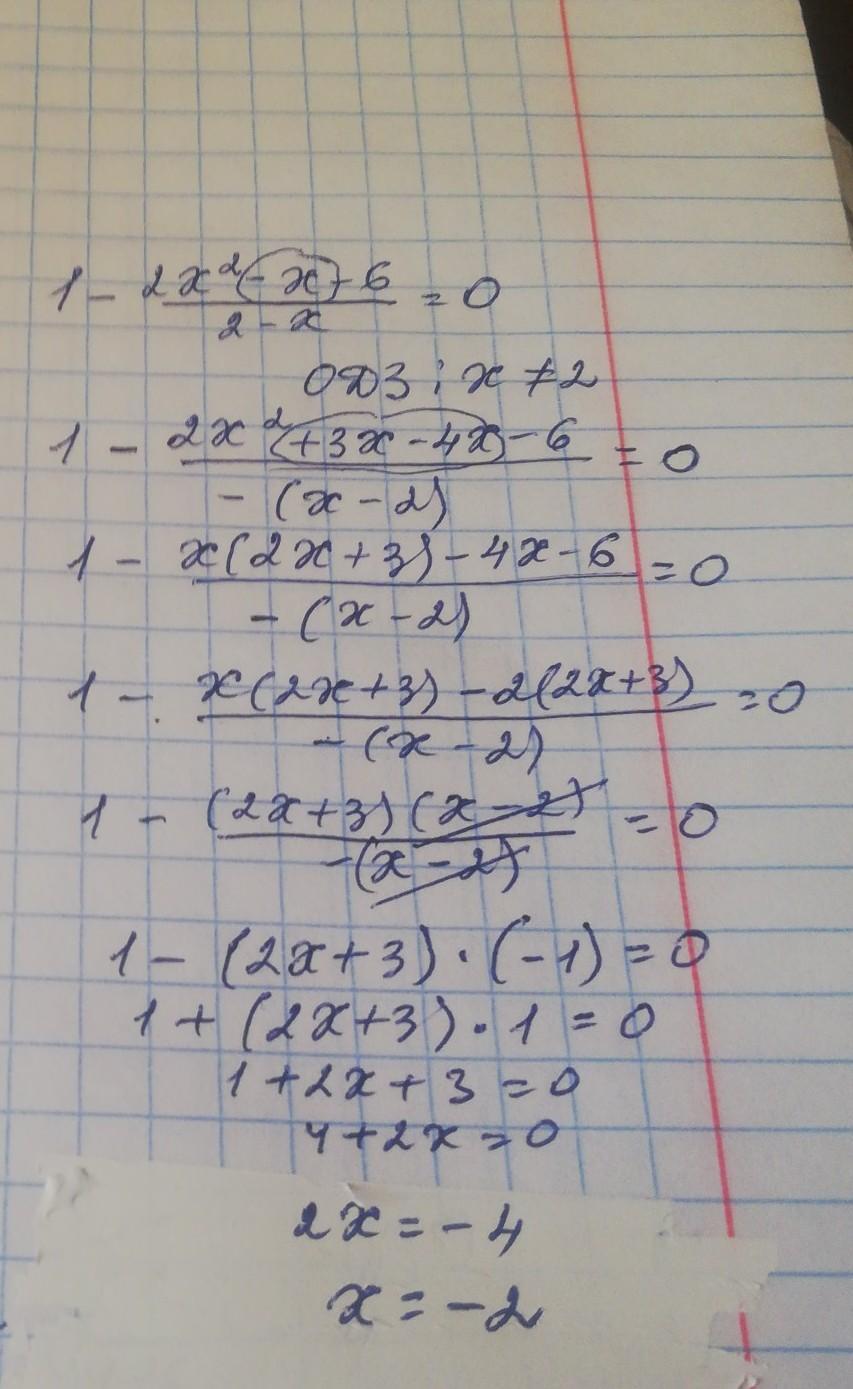 1 - (2x² - x - 6)/(2 - x) = 0
ОДЗ: x ≠ 2
1 - (2x² + 3x - 4x - 6)/(-(x - 2)) = 0
1 - (x(2x + 3) - 4x - 6)/(-(x - 2)) = 0
1 - (x(2x + 3) - 2(2x + 3))/(-(x - 2)) = 0
1 - ((2x + 3)(x - 2))/(-(x - 2)) = 0
1 - (2x + 3) · (-1) = 0
1 + (2x + 3) · 1 = 0
1 + 2x + 3 = 0
4 + 2x = 0
2x = -4
x = -2